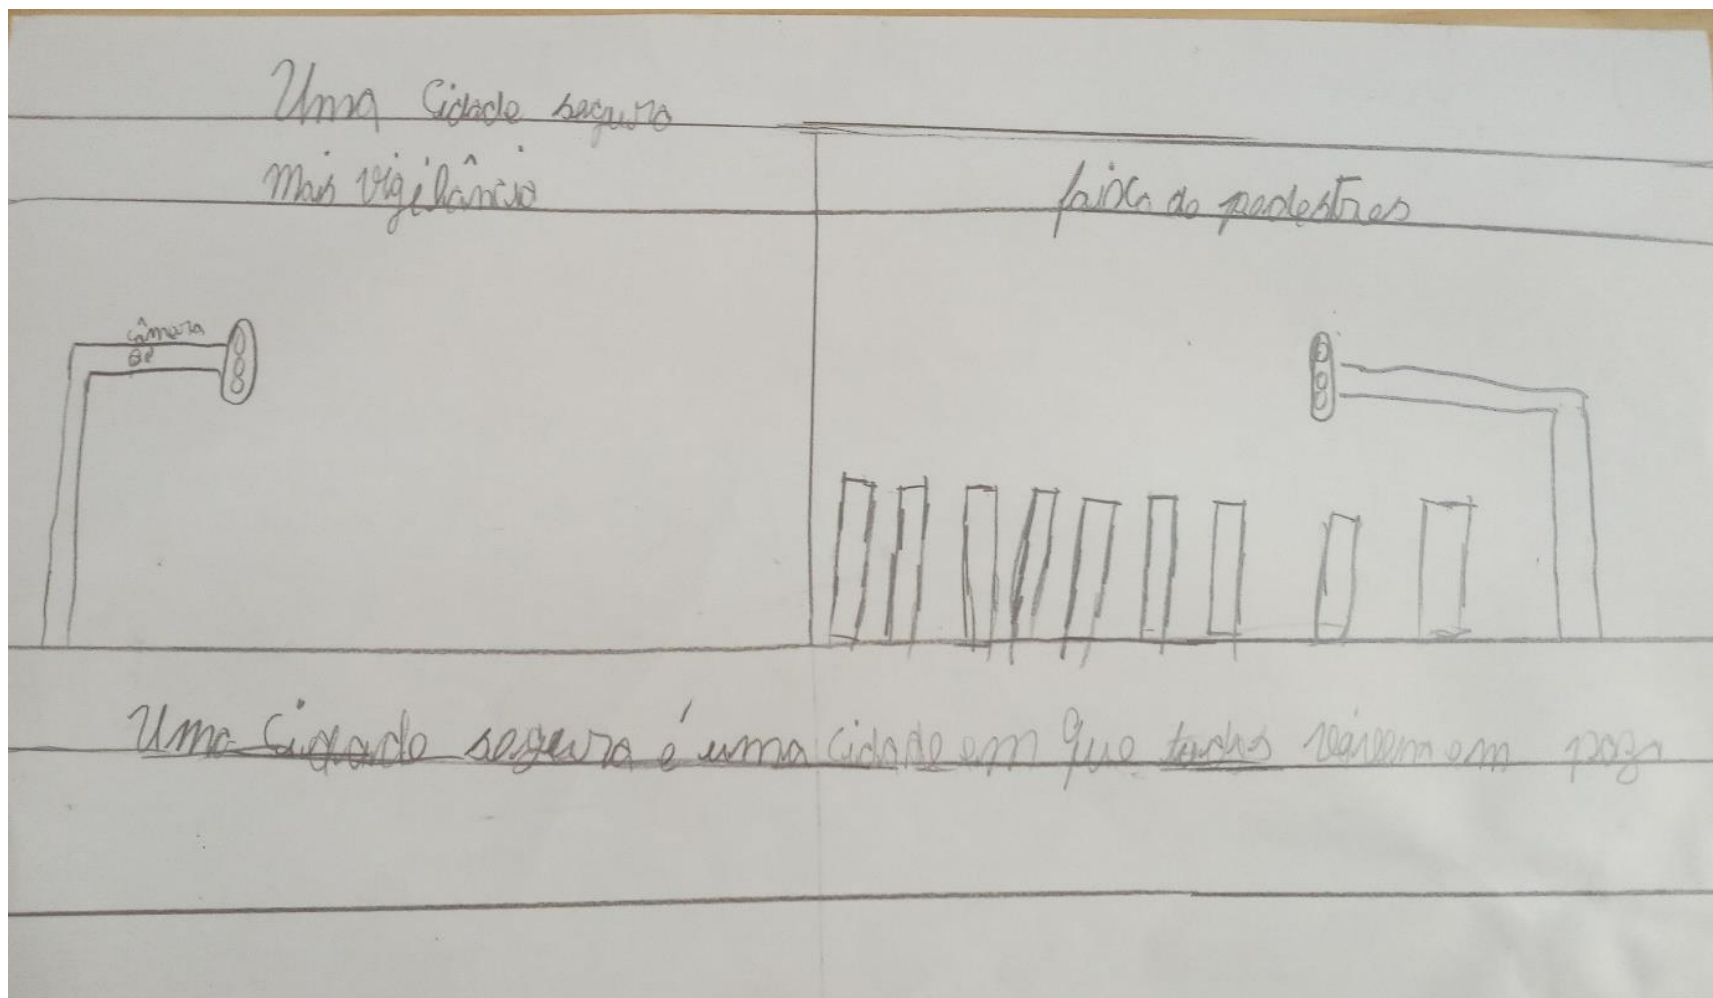 Uma Cidade segura
Mais vigilância
faixa de pedestres
câmera
Uma Cidade segura é uma cidade em que todos vivem em paz